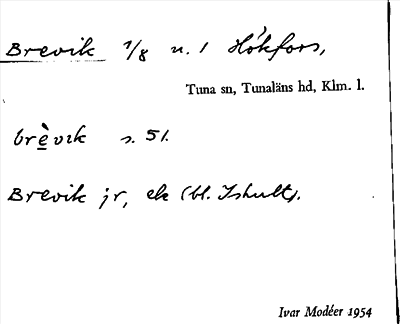 Brevik 1/8 n. 1 Hökfors,
Tuna sn, Tunaläns hd, Klm. l.
brèvɪk s. 51.
Brevik jr, ek (bl. Ishult).
Ivar Modéer 1954